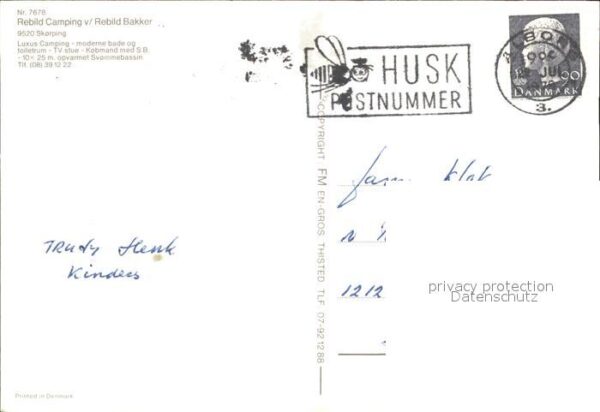 Nr. 7678
Rebild Camping v/ Rebild Bakker
9520 Skørping
Luxus Camping - moderne bade og
toiletrum - TV stue - Købmand med S.B.
- 10 x 25 m. opvarmet Svømmebassin
Tlf. (08) 39 12 22
HUSK
POSTNUMMER
DANMARK
3.
COPYRIGHT FM EN-GROS THISTED TLF 07-92 12 88
Fam.
N
1212
Trudy Henk
Kinders
privacy protection
Datenschutz
Printed in Denmark